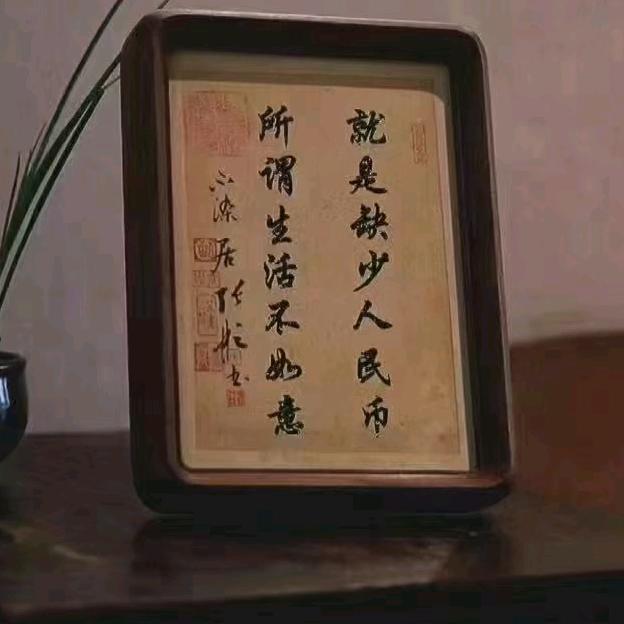 就是缺少人民币
所谓生活不如意
不染居
书